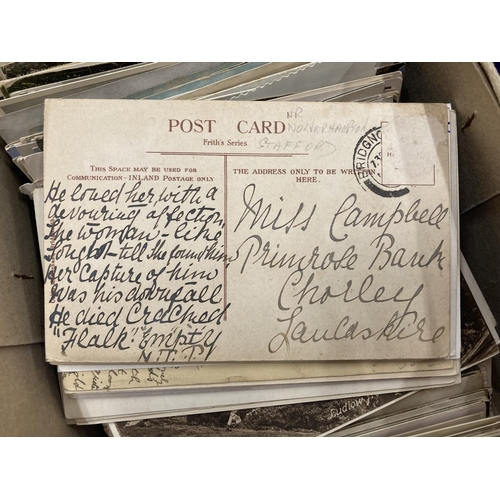 NR
WOLVERHAMPTON
STAFFORD
POST CARD
Frith's Series
THIS SPACE MAY BE USED FOR
COMMUNICATION—INLAND POSTAGE ONLY
THE ADDRESS ONLY TO BE WRITTEN
HERE.
BRIDGNO
He loved her with a
devouring affection
She woman-like
fought-till she found him
Her capture of him
Was his downfall
He died
Empty
Miss Campbell
Primrose Bank
Chorley
Lancashire